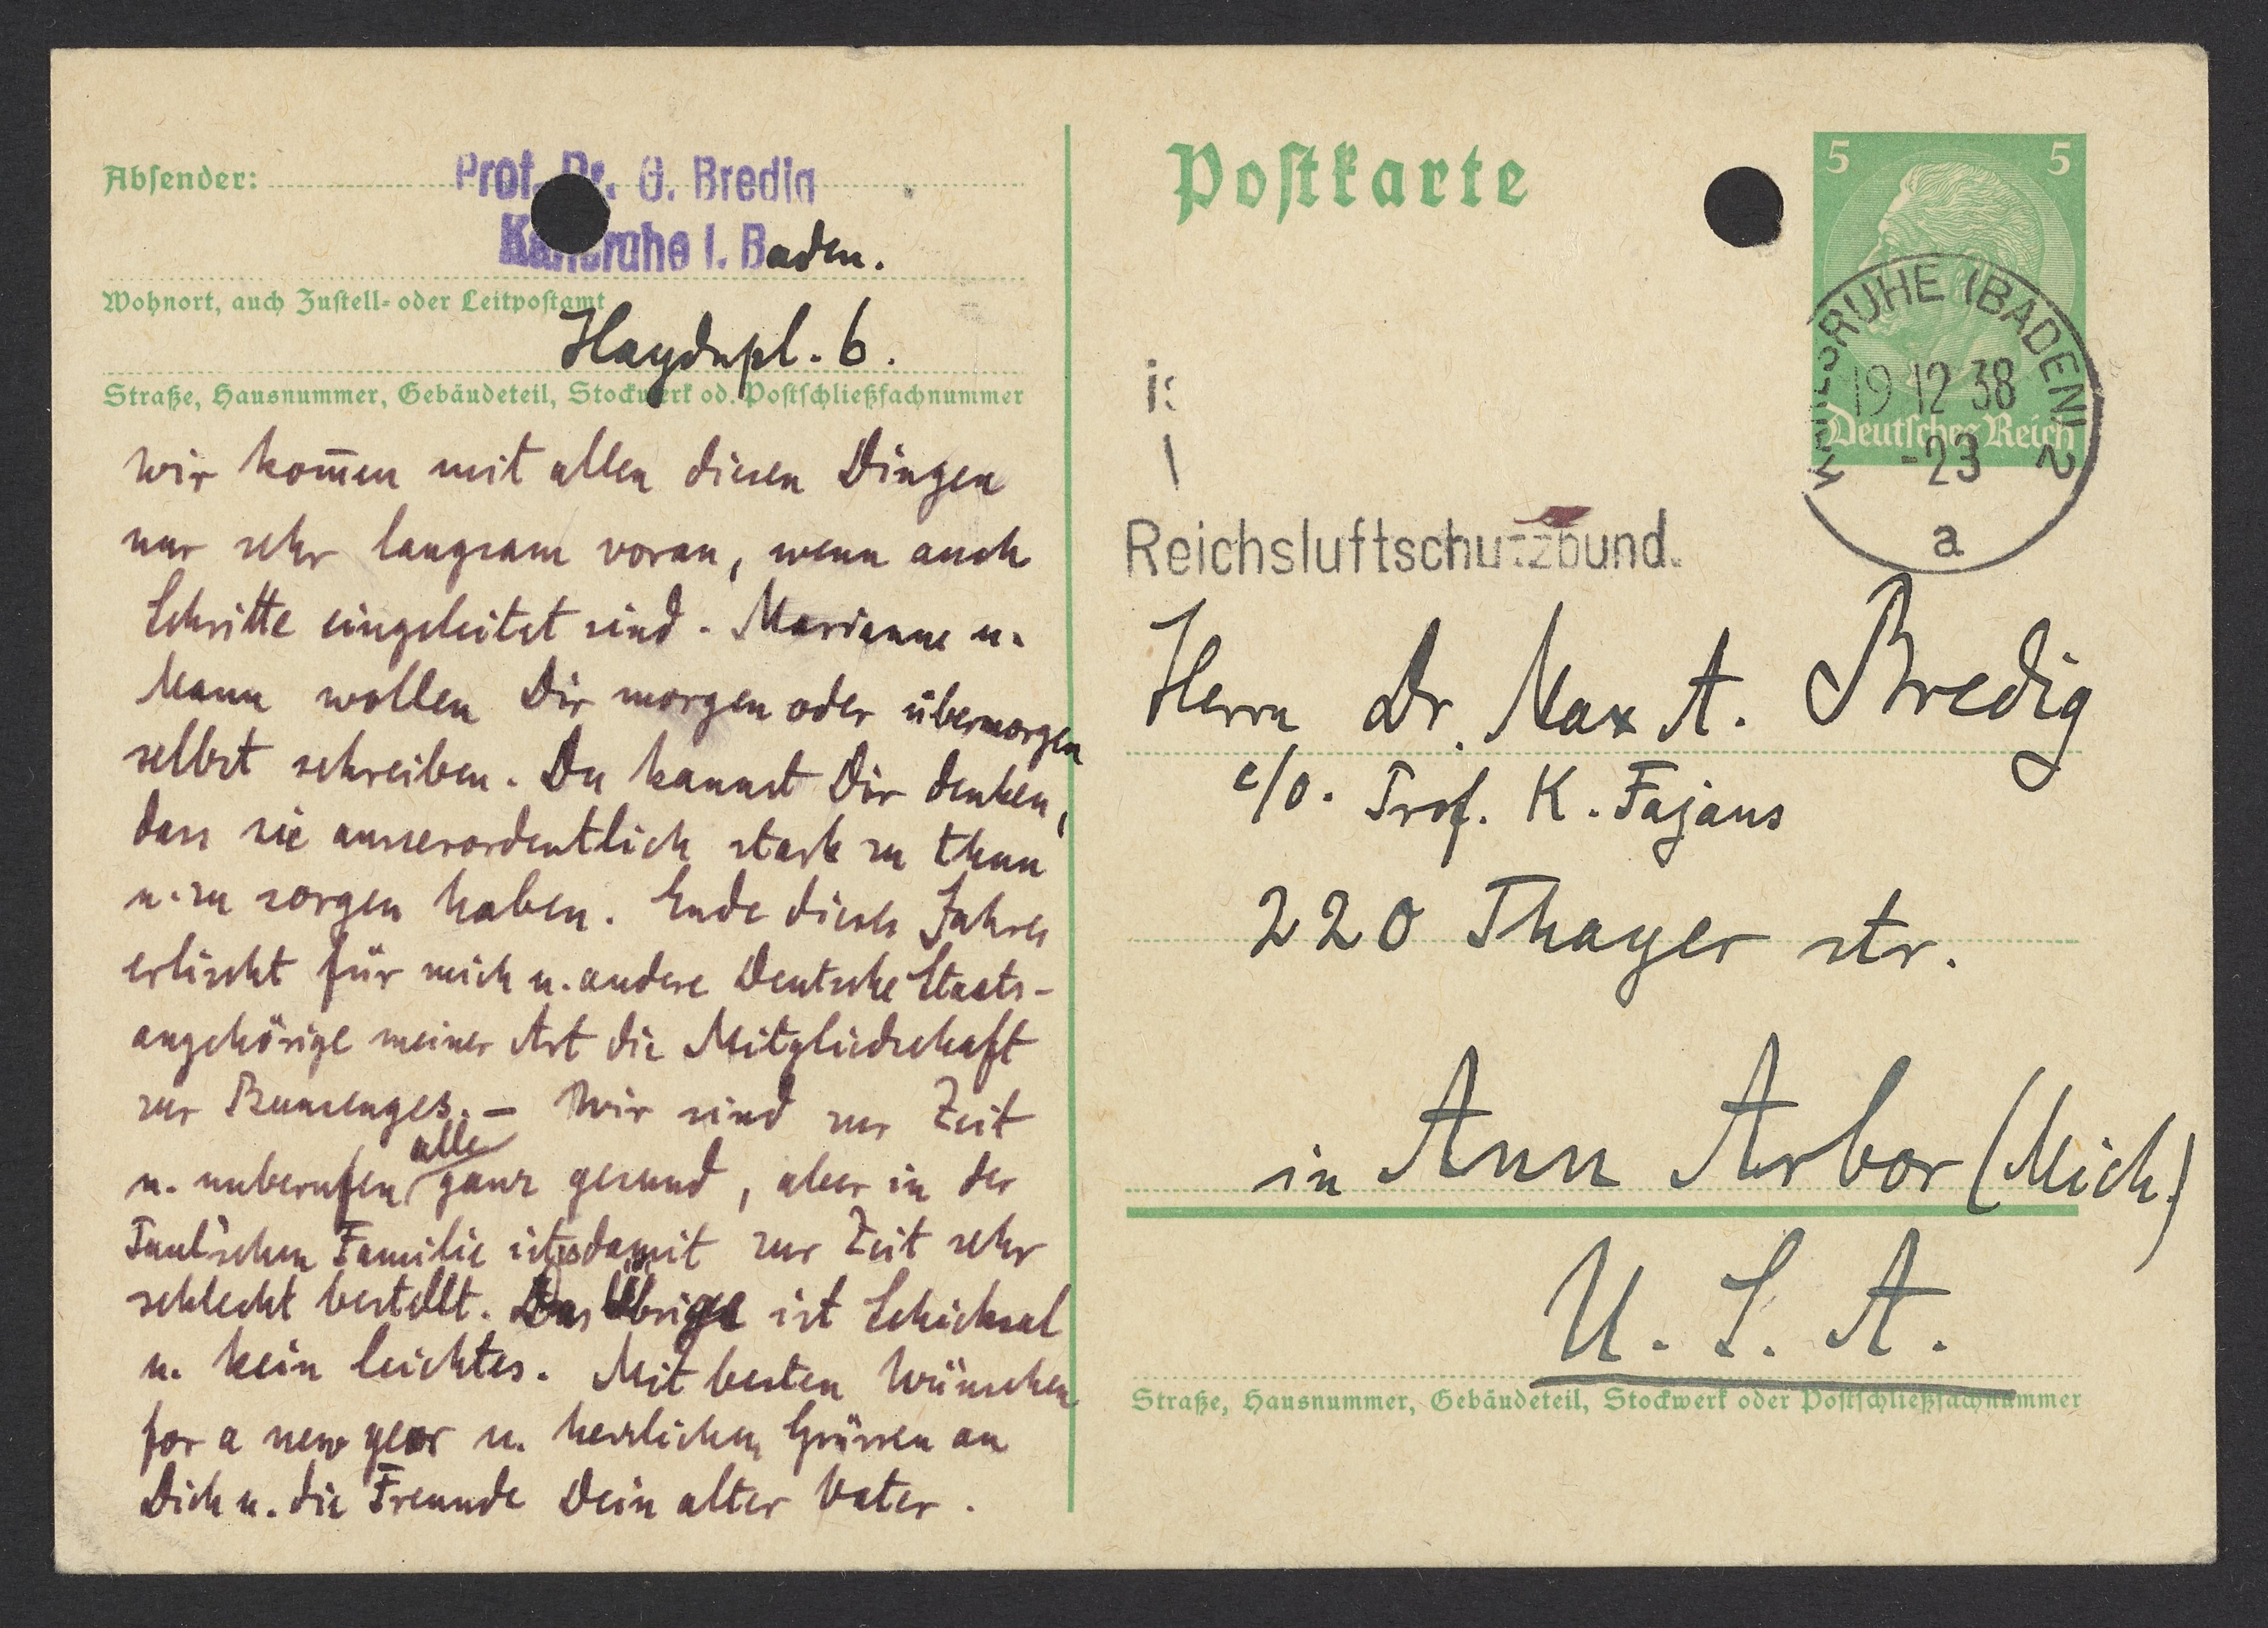 Absender:
Prof. Dr. G. Bredig
Karlsruhe i. Baden.
Wohnort, auch Zustell- oder Leitpostamt
Haydnpl. 6.
Straße, Hausnummer, Gebäudeteil, Stockwerk od. Postschließfachnummer
Wir kom̄en mit allen diesen Dingen
nur sehr langsam voran, wenn auch
Schritte eingeleitet sind. Marianne u.
Mann wollen Dir morgen oder übermorgen
selbst schreiben. Du kannst Dir denken,
dass sie ausserordentlich stark zu thun
u. zu sorgen haben. Ende dieses Jahres
erlischt für mich u. andere Deutsche Staats-
angehörige meiner Art die Mitgliedschaft
zur Bunsenges. – Wir sind zur Zeit
u. unberufen alle ganz gesund, aber in der
Familie ist es damit zur Zeit sehr
schlecht bestellt. Das Übrige ist Schicksal
u. kein leichtes. Mit besten Wünschen
for a new year u. herzlichen Grüssen an
Dich u. die Freunde Dein alter Vater.
Postkarte
5 5
Deutsches Reich
KARLSRUHE (BADEN) 2
19 12 38
-23
a
Reichsluftschutzbund.
Herrn Dr. Max A. Bredig
c/o. Prof. K. Fajans
220 Thayer str.
in Ann Arbor (Mich.)
U. S. A.
Straße, Hausnummer, Gebäudeteil, Stockwerk oder Postschließfachnummer